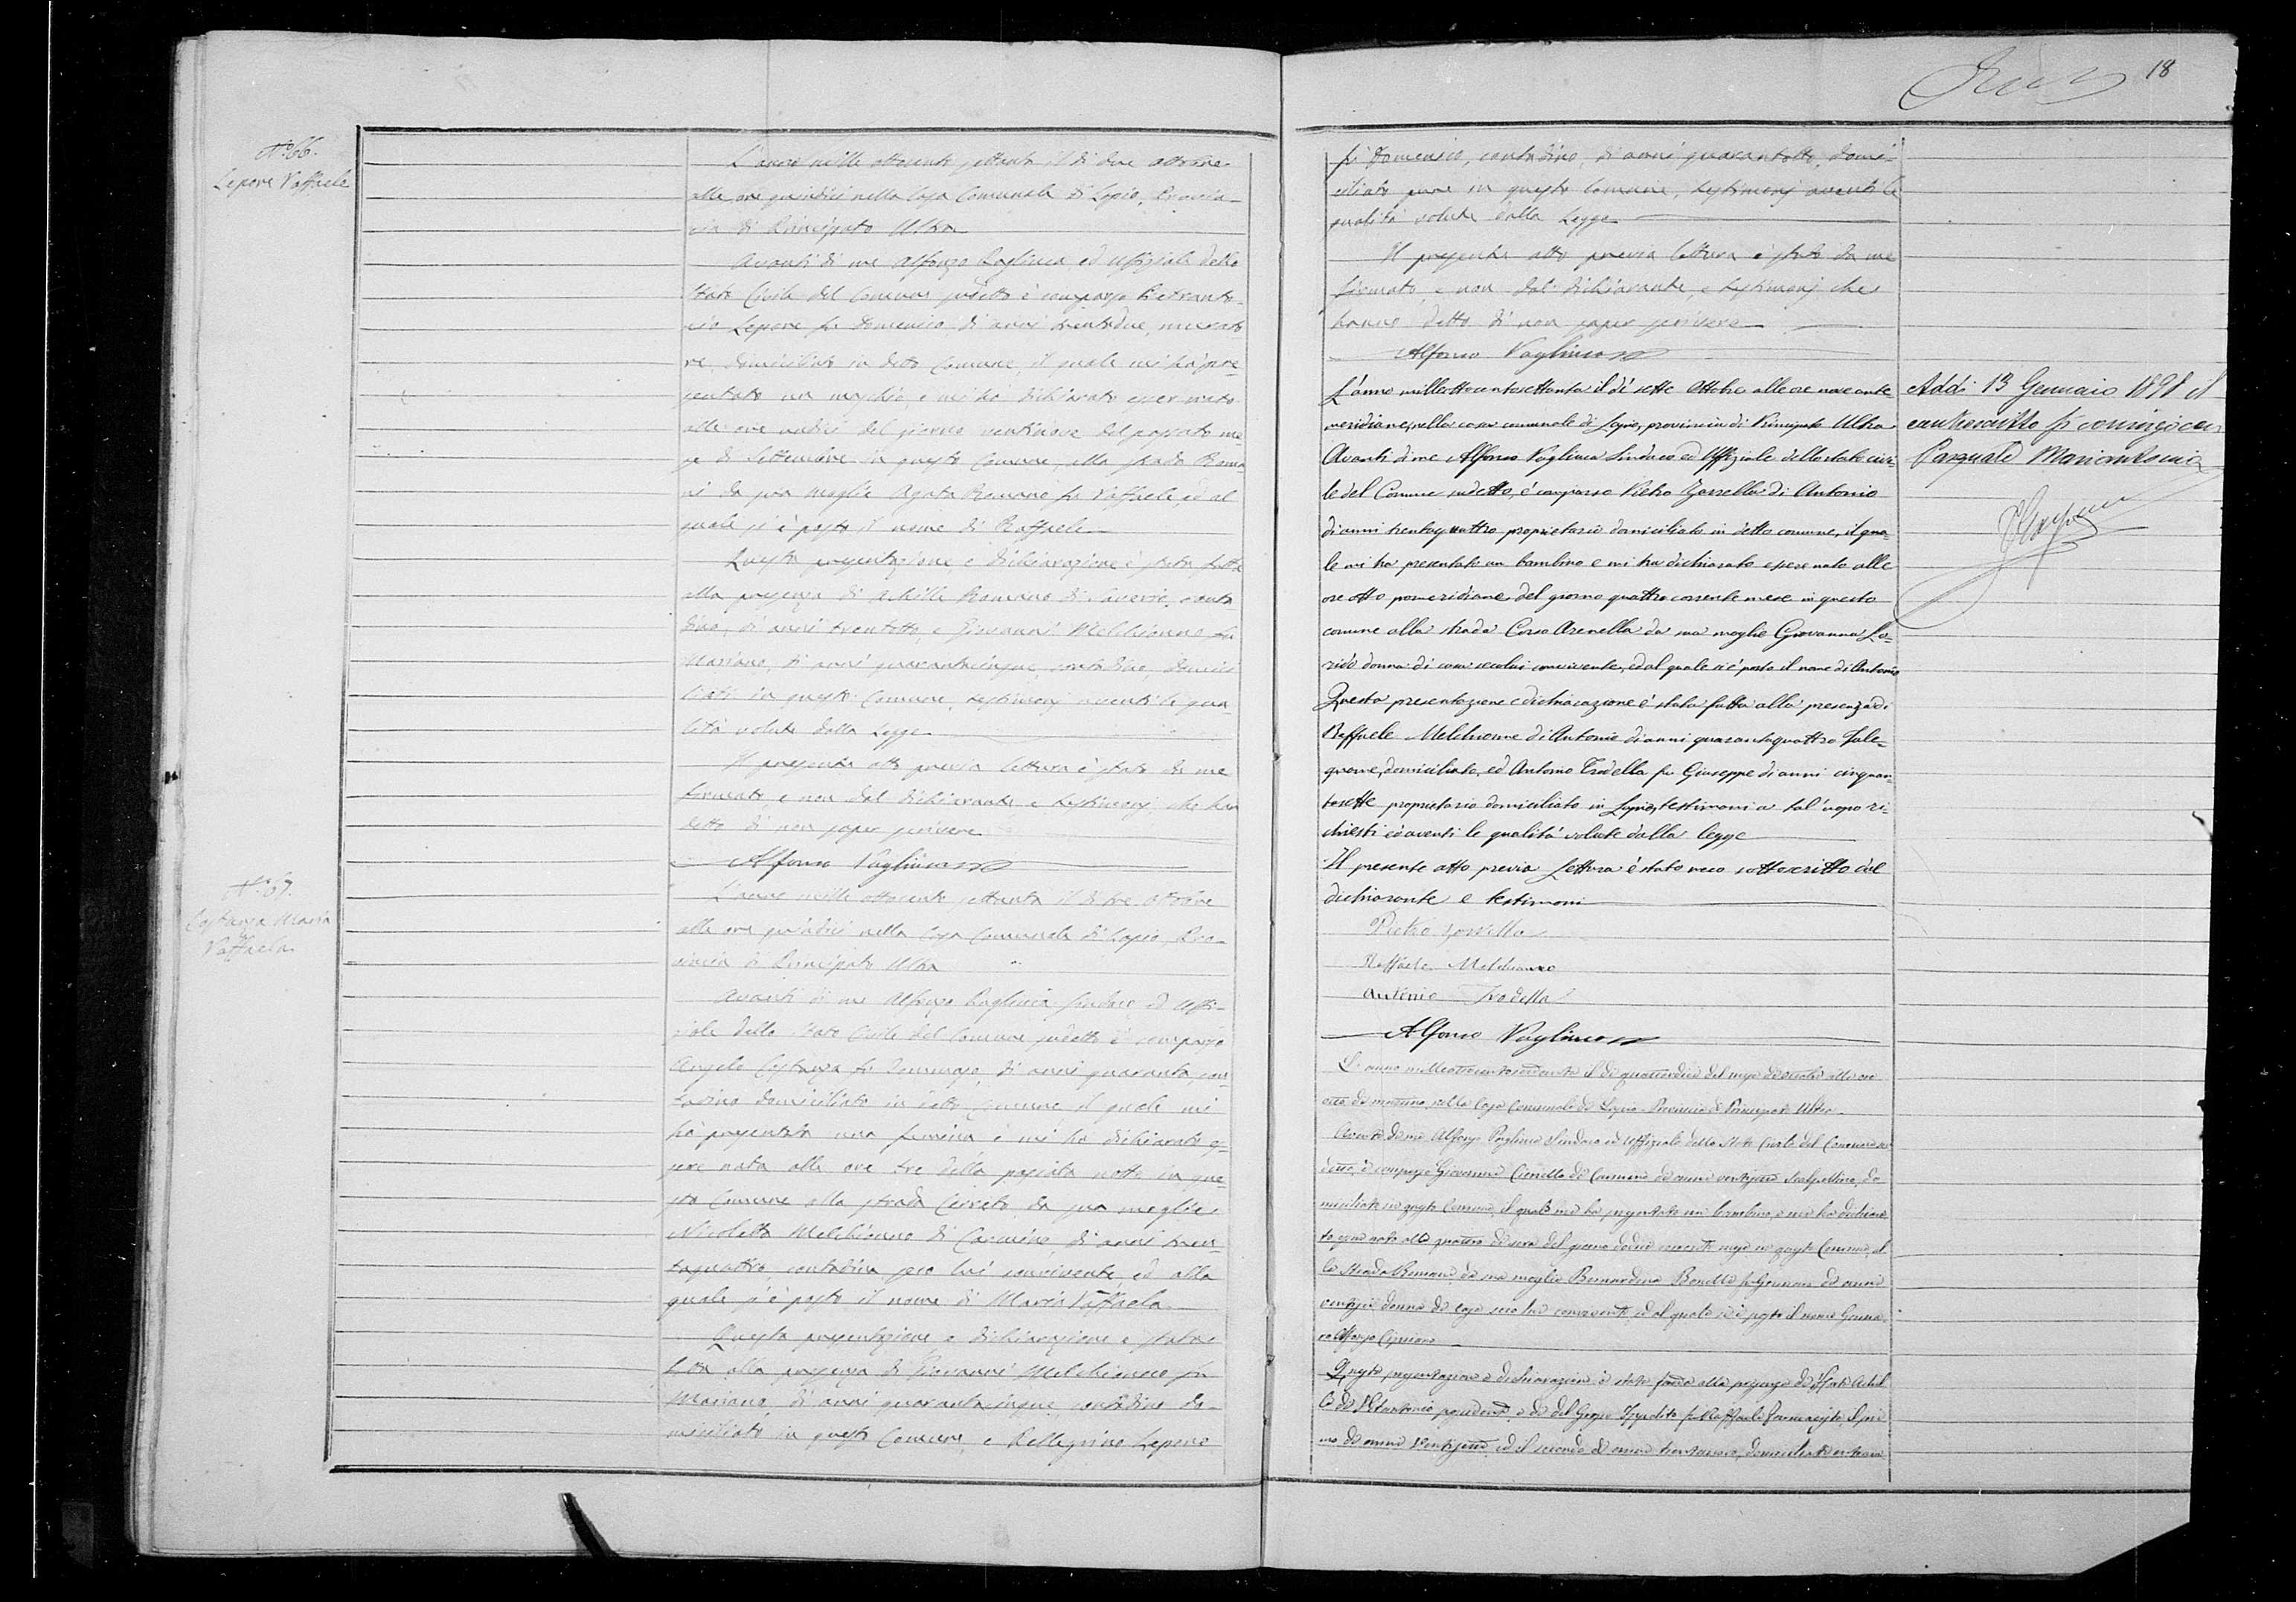 18
N.° 66.
Lepore Raffaele
L'anno mille ottocento settanta il dì due ottobre
alle ore quindici nella Casa Comunale di Lapio, Provin-
cia di Principato Ultra
Avanti di me Alfonzo Vagliuca ed Uffiziale dello
Stato Civile del Comune sudetto è comparso Pietranto-
nio Lepore fu Domenico di anni trentadue, murato
re, domiciliato in detto Comune, il quale mi ha pre-
sentato un maschio, e mi ha dichiarato esser nato
alle ore undici del giorno ventinove del passato me
se di Settembre in questo Comune, alla strada Roma
ni da sua moglie Agata Romano fu Raffaele, ed al
quale si è posto il nome di Raffaele
Questa presentazione e dichiarazione è stata fatta
alla presenza di Achille Romano di Saverio, conta
dino, di anni trentotto, e Giovanni Melchionno fu
Mariano, di anni quarantacinque, contadino, domici
liati in questo Comune, testimonj aventi le qua-
lità volute dalla Legge
Il presente atto previa lettura è stato da me
firmato, e non dal dichiarante e testimonj che han
detto di non saper scrivere
Alfonso Vagliuca
N.° 67.
Costanza Maria
Raffaela
L'anno mille ottocento settanta il dì tre ottobre
alle ore quindici nella Casa Comunale di Lapio, Pro-
vincia di Principato Ultra
Avanti di me Alfonzo Vagliuca Sindaco ed Uffi-
ziale dello Stato Civile del Comune sudetto è comparso
Angelo Costanza fu Tommaso, di anni quaranta, con
tadino domiciliato in detto Comune il quale mi
ha presentata una femina e mi ha dichiarato es-
sere nata alle ore tre della passata notte in que-
sto Comune alla strada Cerreto da sua moglie
Nicoletta Melchionno di Carmine, di anni tren-
taquattro, contadina seco lui convivente, ed alla
quale si è posto il nome di Maria Raffaela
Questa presentazione e dichiarazione è stata
fatta alla presenza di Giovanni Melchionno fu
Mariano, di anni quarantacinque contadino do-
miciliato in questo Comune, e Pellegrino Lepore
fu Domenico, contadino, di anni quarantotto, domi-
ciliato pure in questo Comune, testimonj aventi le
qualità volute dalla Legge
Il presente atto previa lettura è stato da me
firmato, e non dal dichiarante, e testimonj che
hanno detto di non saper scrivere
Alfonso Vagliuca
L'anno milleottocentosettanta il dì sette Ottobre alle ore nove ante
meridiane, nella casa comunale di Lapio, provincia di Principato Ultra
Avanti di me Alfonso Vagliuca Sindaco ed Uffiziale dello stato civi-
le del Comune sudetto, è comparso Pietro Zarrella di Antonio
di anni trentaquattro proprietario domiciliato in detto comune, il qua-
le mi ha presentato un bambino e mi ha dichiarato essere nato alle
ore otto pomeridiane del giorno quattro corrente mese in questo
comune alla strada Corso Arenella da sua moglie Giovanna
donna di casa secolui convivente, ed al quale si è posto il nome di Antonio
Questa presentazione e dichiarazione è stata fatta alla presenza di
Raffaele Melchionne di Antonio di anni quarantaquattro Fale-
gname, domiciliato, ed Antonio Trodella fu Giuseppe di anni cinquan-
tasette proprietario domiciliato in Lapio, testimoni a tal'uopo ri-
chiesti ed aventi le qualità volute dalla legge
Il presente atto previa Lettura è stato meco sottoscritto dal
dichiarante e testimoni
Pietro Zarrella
Raffaele Melchionno
Antonio Trodella
Alfonso Vagliuca
Addì 13 Gennaio 1898 il
controscritto si coniugò con
Pasquale Mariantonia
L'anno milleottocentosettanta il dì quattordici del mese di ottobre alle ore
otto di mattina, nella Casa Comunale di Lapio Provincia di Principato Ultra
Avanti di me Alfonzo Vagliuca Sindaco ed Uffiziale dello Stato Civile del Comune su
detto, è comparso Giovanni Ciriello di Carmine di anni ventisette Scalpellino, do
miciliato in questo Comune, il quale mi ha presentato un bambino, e mi ha dichiara
to esser nato alle quattro di sera del giorno dodici corrente mese in questo Comune, al
la Strada Romani da sua moglie Bernardina Bonello fu Gennaro di anni
donna di casa seco lui convivente, ed al quale si è posto il nome Genna
ro Alfonzo Cipriano
Questa presentazione e dichiarazione è stata fatta alla presenza di Achil
le possidente, e di del Grosso Ippolito fu Raffaele Farmacista, il pri
mo di anni ventisette, ed il secondo di anni trentanove, domiciliati entrambi